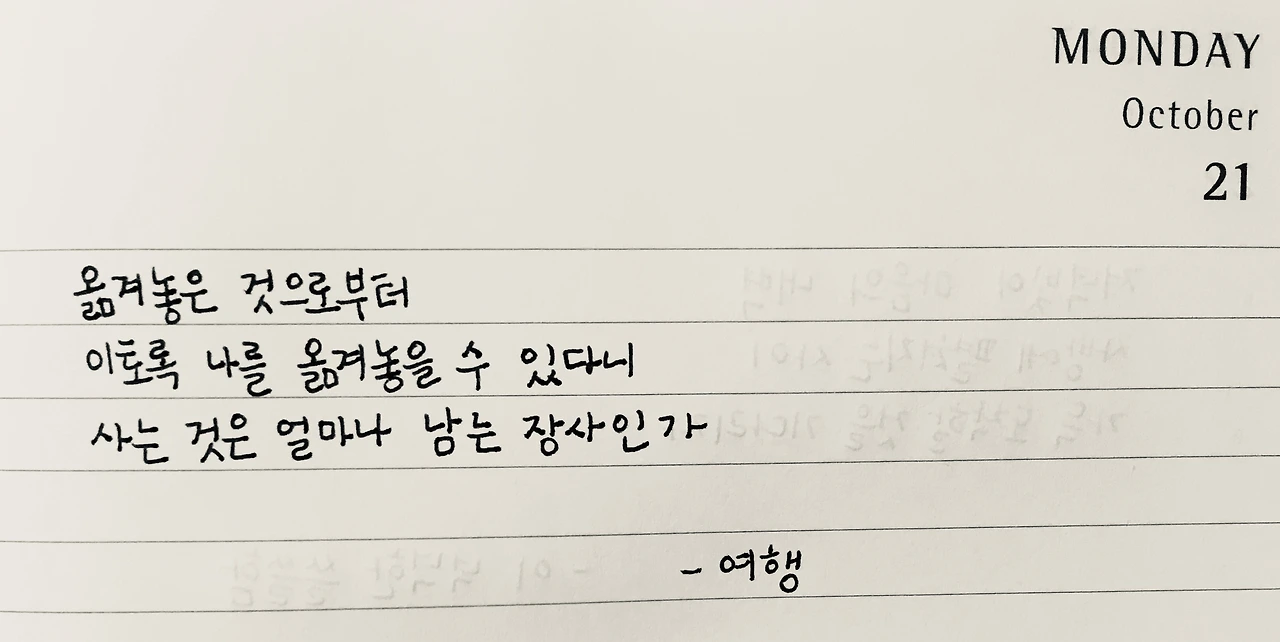 MONDAY
October
21
옮겨놓은 것으로부터
이토록 나를 옮겨놓을 수 있다니
사는 것은 얼마나 남는 장사인가
- 여행